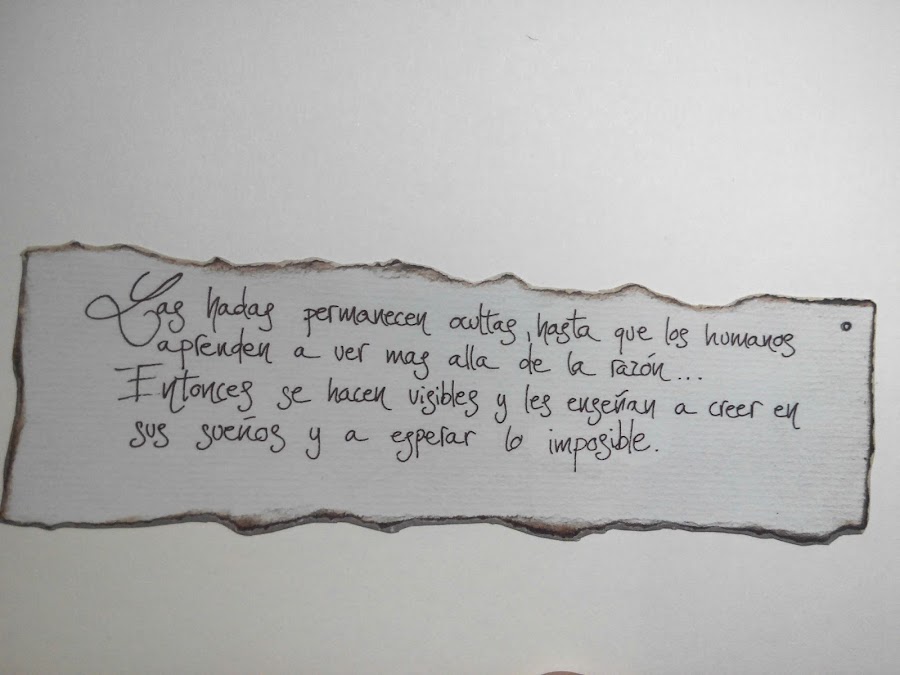 Las hadas permanecen ocultas, hasta que los humanos
aprenden a ver mas alla de la razón...
Entonces se hacen visibles y les enseñan a creer en
sus sueños y a esperar lo imposible.